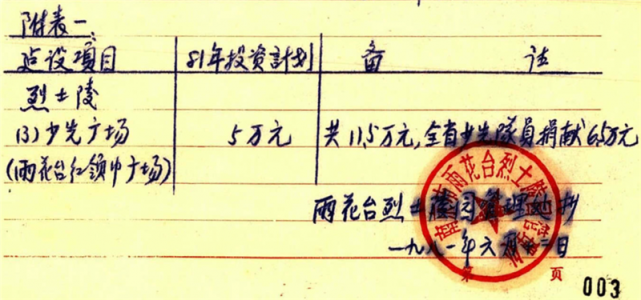 附表一:
建设项目 81年投资計划 备 注
烈士陵
(3)少先广场 5万元 共11.5万元,全省少先隊員捐献6.5万元
(雨花台红领巾广场)
雨花台烈士陵园管理处抄
一九八一年六月十二日
第 页
003